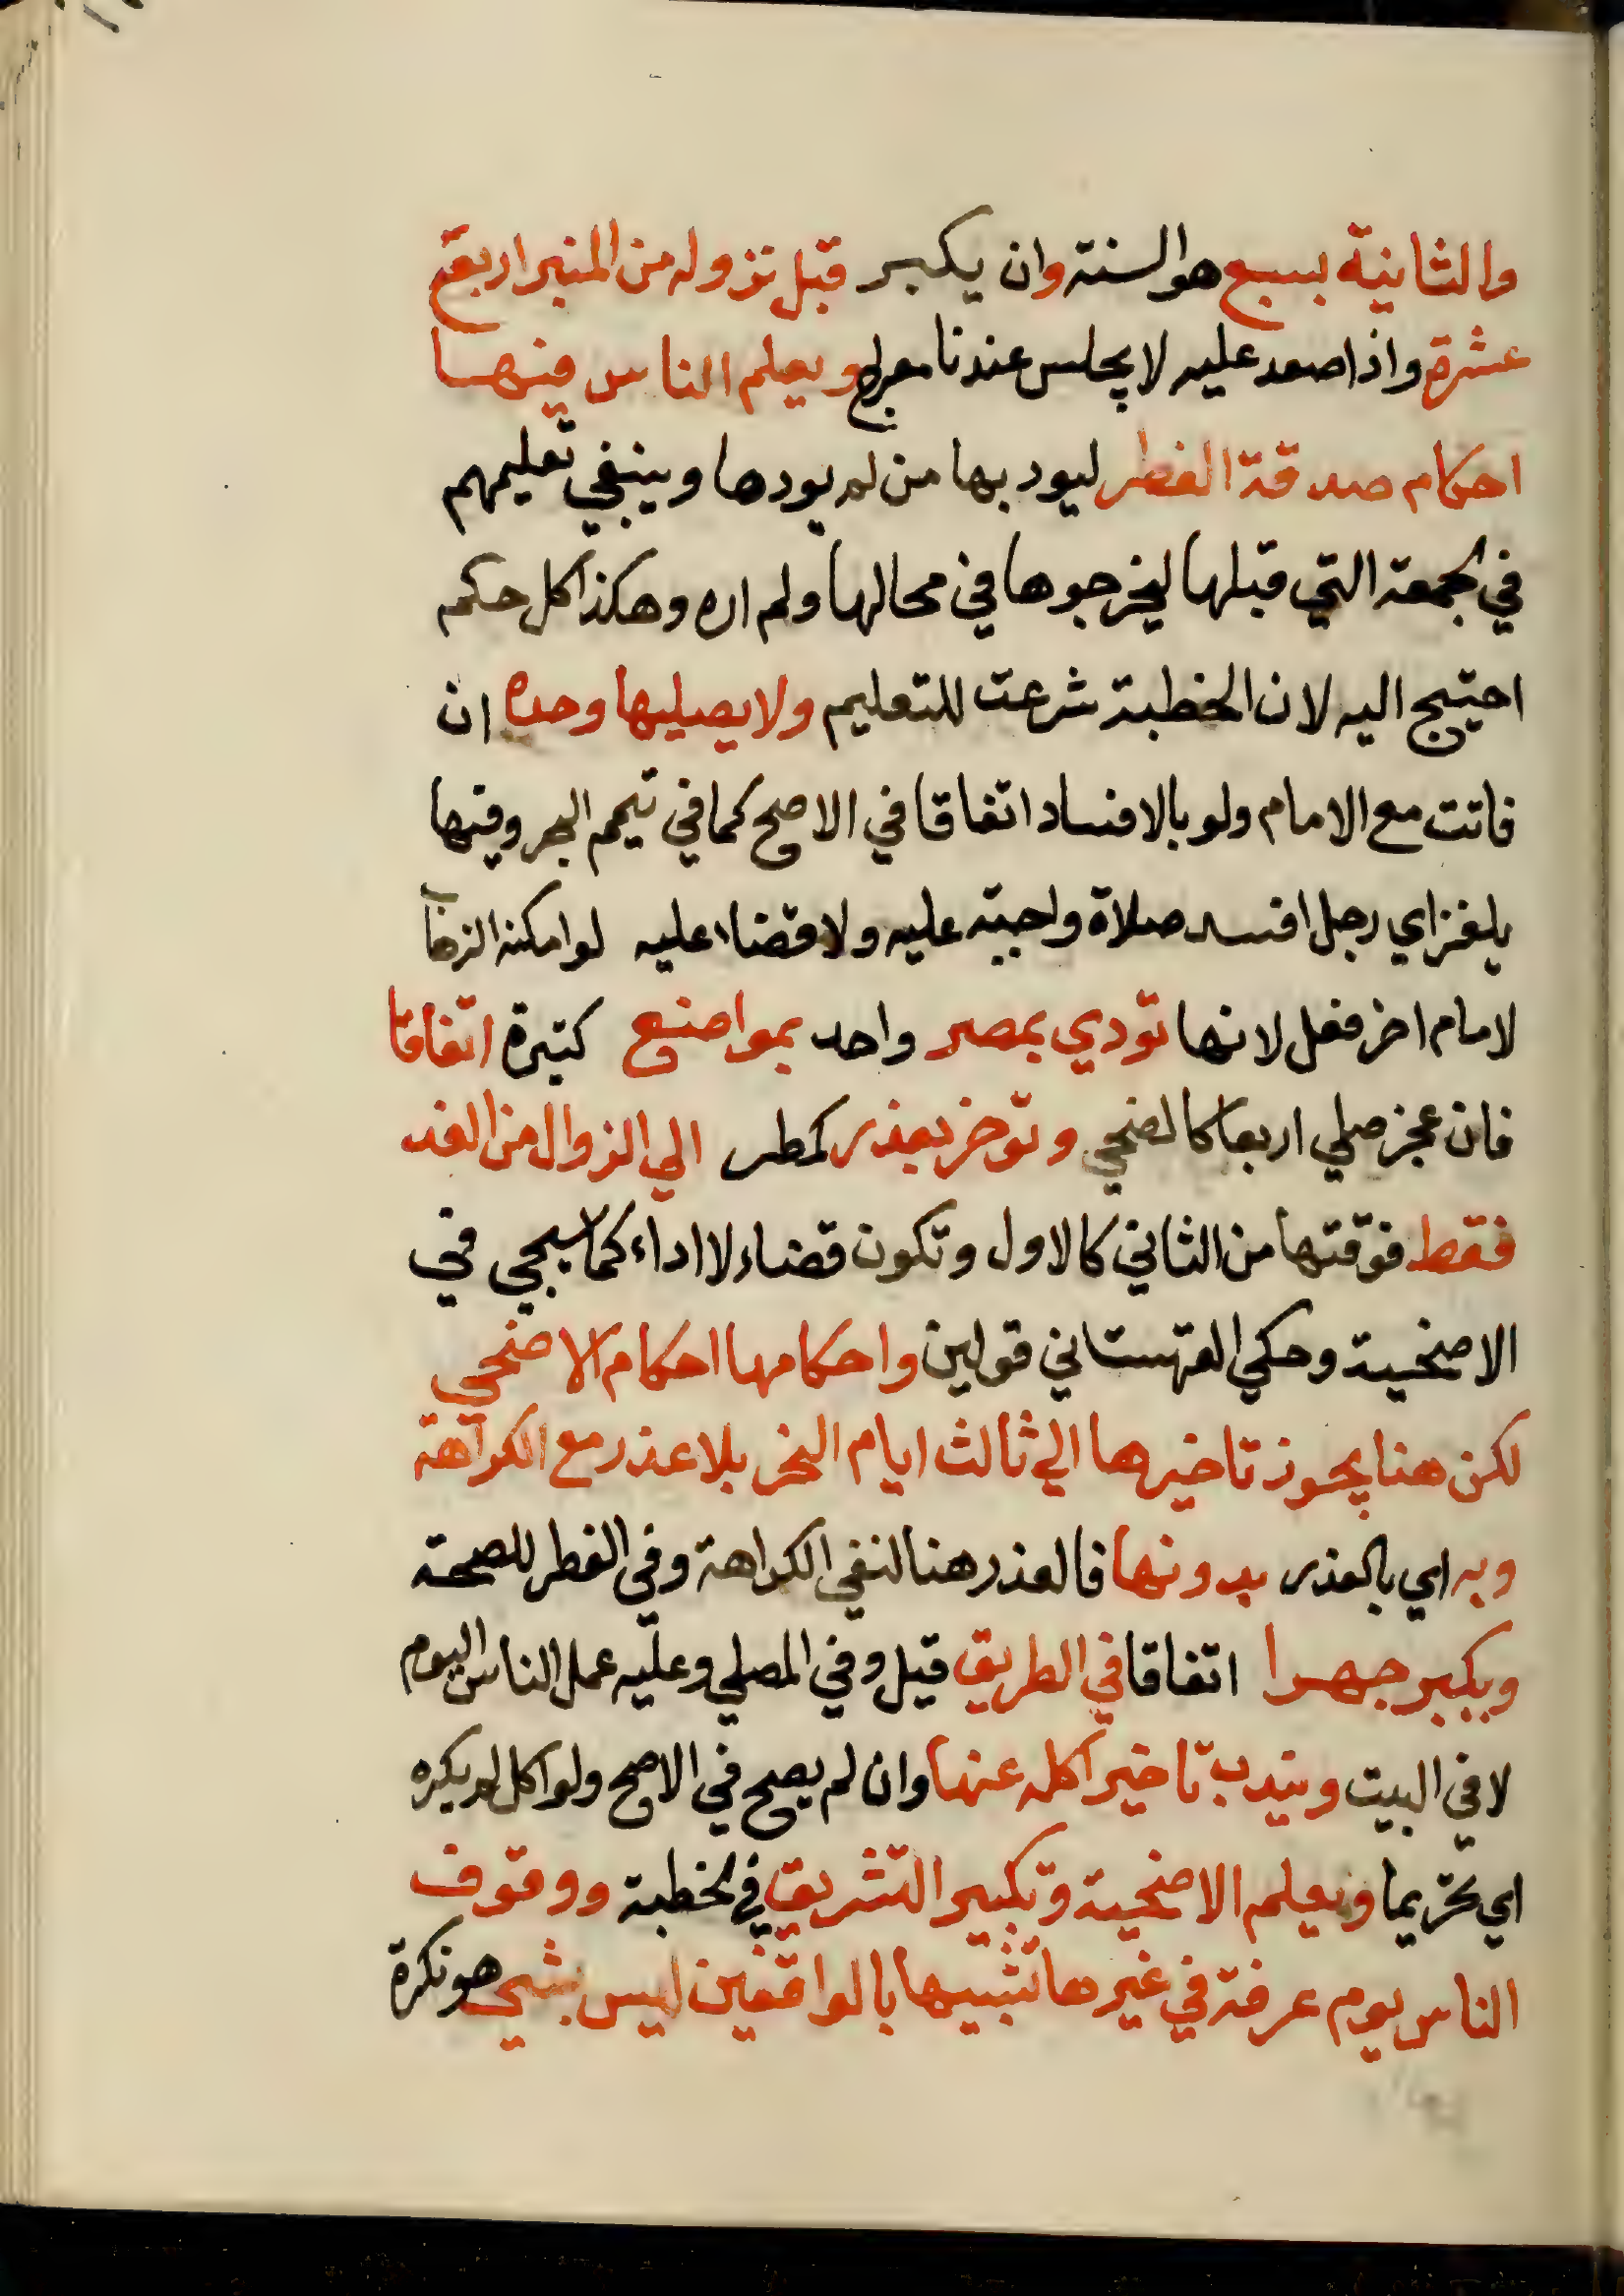 والثانية بسبع هو السنة وان يكبر قبل نزوله من المنبر اربع
عشرة واذا صعد عليه لا يجلس عندنا معراج ويعلم الناس فيها
احكام صدقة الفطر ليوديها من لم يودها وينبغي تعليمهم
في الجمعة التي قبلها ليخرجوها في محالها ولم اره وهكذا كل حكم
احتيج اليه لان الخطبة شرعت للتعليم ولا يصليها وحده ان
فاتت مع الامام ولو بالافساد اتفاقا في الاصح كما في تيمم البحر وفيها
يلغز اي رجل افسد صلاة واجبة عليه ولا قضاء عليه لو امكنه الذهاب
لامام اخر فعل لانها تودي بمصر واحد بمواضع كثيرة اتفاقا
فان عجز صلي اربعا كالضحي وتوخر بعذر كمطر الي الزوال من الغد
فقط فوقتها من الثاني كالاول وتكون قضاء لا اداء كما سيجي في
الاضحية وحكي القهستاني قولين واحكامها احكام الاضحي
لكن هنا يجوز تاخيرها الي ثالث ايام النحر بلا عذر مع الكراهة
وبه اي بالعذر بدونها فالعذر هنا لنفي الكراهة وفي الفطر للصحة
ويكبر جهرا اتفاقا في الطريق قيل وفي المصلي وعليه عمل الناس اليوم
لا في البيت ويندب تاخير اكله عنها وان لم يضح في الاصح ولو اكل لم يكره
اي تحريما ويعلم الاضحية وتكبير التشريق في الخطبة ووقوف
الناس يوم عرفة في غيرها تشبيها بالواقفين ليس بشي هو نكرة